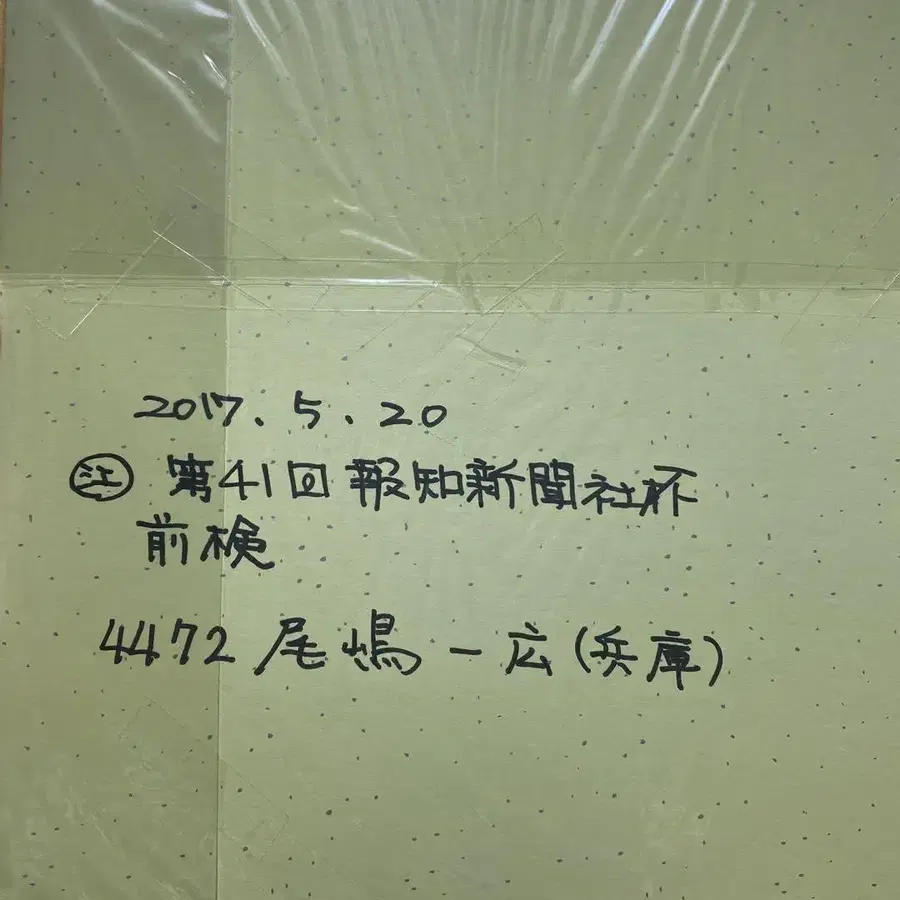 2017.5.20
㋓ 第41回 報知新聞社杯
前検
4472 尾嶋一広(兵庫)